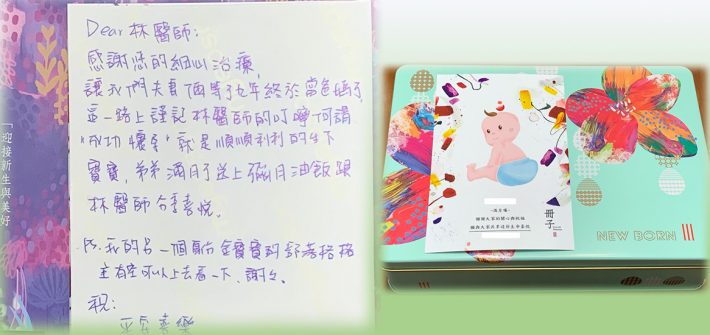 Dear 林醫師:
感謝您的細心治療,
讓我們夫妻倆等了九年終於當爸媽了
這一路上謹記林醫師的叮嚀何謂
"成功懷孕"就是順順利利的生下
寶寶,弟弟滿月了送上彌月油飯跟
林醫師分享喜悅。
P.S.我的另一個身份
可以上去看一下,謝謝。
祝:
平安喜樂
「迎接新生與美好
冊子
NEW BORN